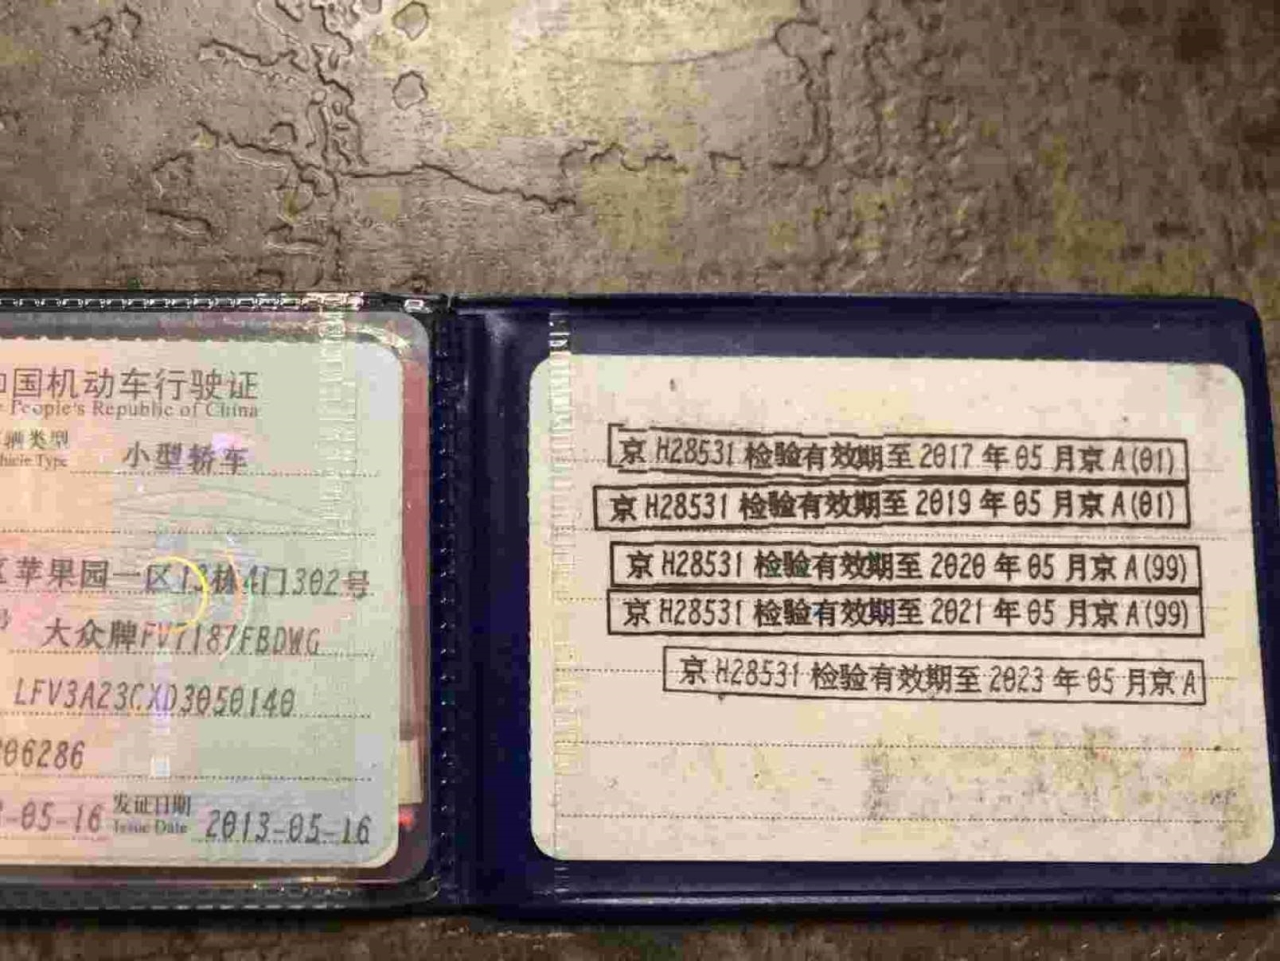 中国机动车行驶证
People's Republic of China
车辆类型
Vehicle Type 小型轿车
区苹果园一区13栋4门302号
号 大众牌FV7187FBDWG
LFV3A23CXD3050140
06286
-05-16 发证日期 2013-05-16
Issue Date
京 H28531 检验有效期至 2017 年 05 月京 A(01)
京 H28531 检验有效期至 2019 年 05 月京 A(01)
京 H28531 检验有效期至 2020 年 05 月京 A(99)
京 H28531 检验有效期至 2021 年 05 月京 A(99)
京 H28531 检验有效期至 2023 年 05 月京 A